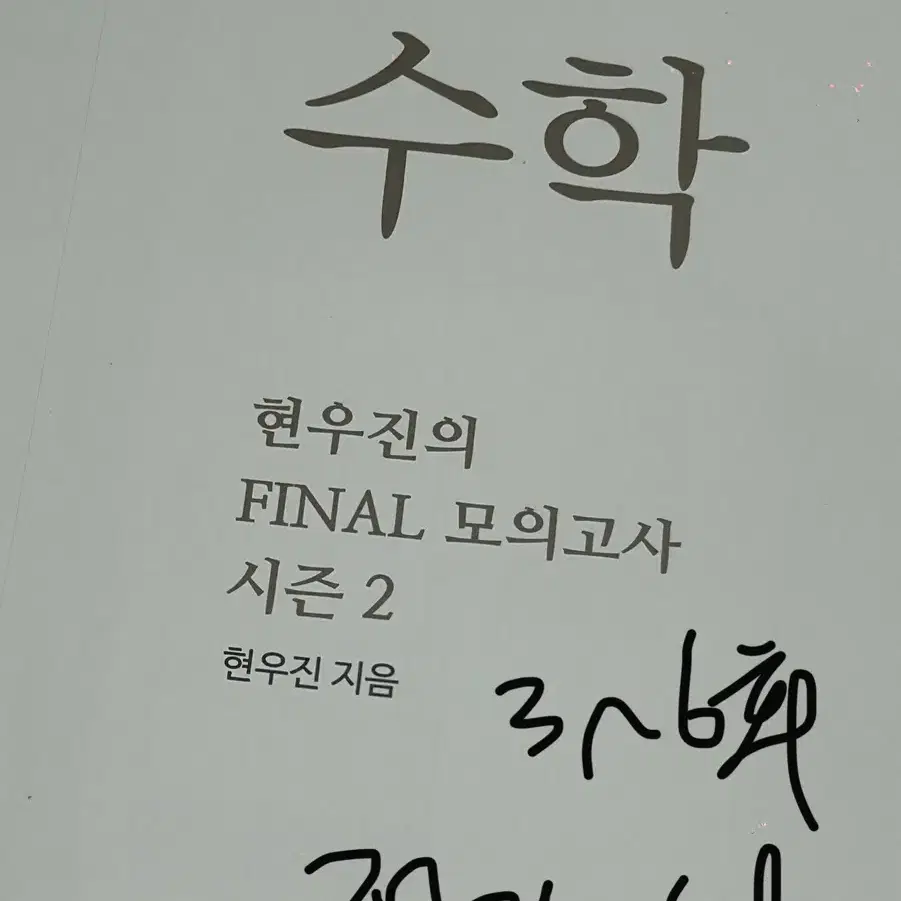 수학
현우진의
FINAL 모의고사
시즌 2
현우진 지음
3~6회